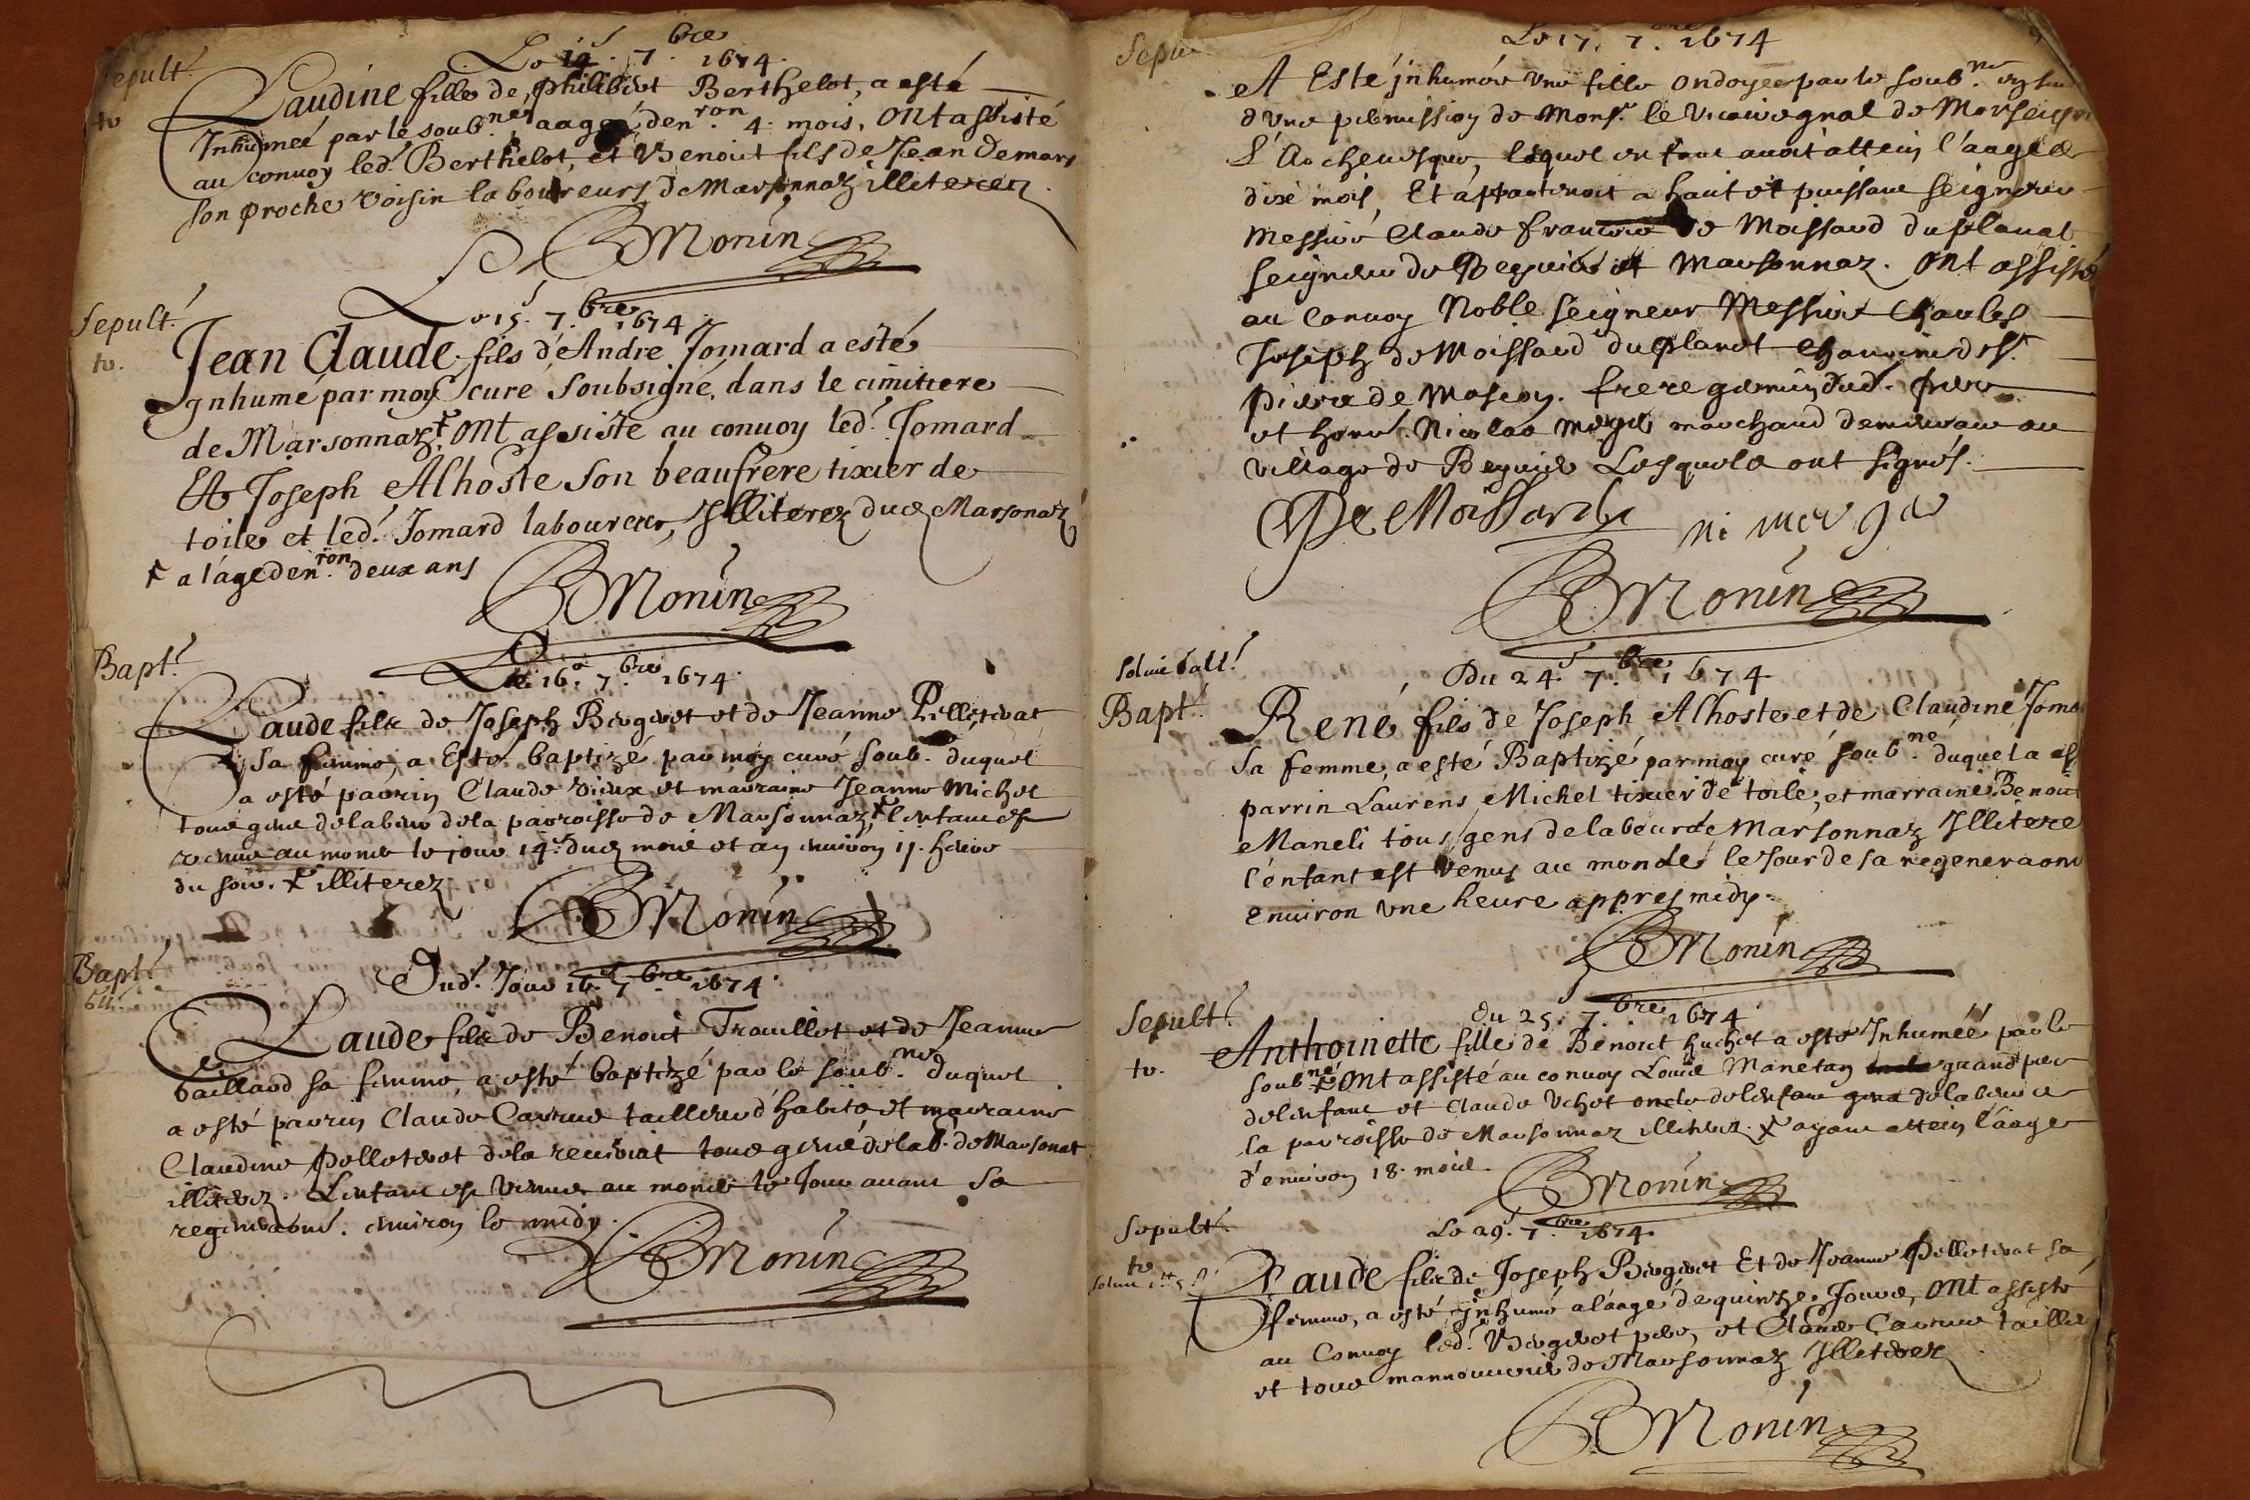 Sepult.
to
Le 14. 7.bre 1674.
Claudine fille de philibert Berthelot, a esté
Inhumeé par le soub.né aageé d'en.ron 4. mois, ont assisté
au convoy led. Berthelot, et Benoict fils de Jean Demars
son proche voisin laboureurs de Marsonnaz illiterez.
BMonin
Sepult.
to.
Le 15. 7.bre 1674
Jean Claude fils d'Andre Jomard a esté
Inhumé par moy curé soubsigné, dans le cimitiere
de Marsonnaz ont assisté au convoy led. Jomard
Et Joseph Alhoste son beaufrere tixier de
toile et led. Jomard laboureur, Illiterez dud Marsonaz
a l'age d'en.ron deux ans
BMonin
Bapt.
Le 16. 7.bre 1674.
Claude filz de Joseph Brogivet et de Jeanne Pilliterat
sa femme, a Esté baptizé par moy curé soub. duquel
a esté parrin Claude Vieux et marraine Jeanne Michel
tous gens de labeur de la parroisse de Marsonnaz l'enfant est
venu au monde le jour 14. dud mois et an environ 11. heure
du soir. illiterez
BMonin
Bapt.
Dud. Jour 16. 7.bre 1674.
Claude filz de Benoict Trouillet et de Jeanne
baillard sa femme, a esté baptizé par le soub.né duquel
a esté parrin Claude Carrue tailleur d'habits et marraine
Claudine Pelleterat de la tous gens de lab. de Marsonat
illiterez. L'enfant est venu au monde le Jour avant sa
regeneraone. environ le midy.
BMonin
Sepu
Le 17. 7.bre 1674
A Esté inhumée une fille ondoyee par le soub.né
d'une permission de Mons.r le Vicaire gnal de Monseign
L'Archevesque, lequel enfant avoit attein l'aage de
dixe mois, Et appartenoit a haut et puissant seigneur
Messire Claude francois de Moissard du planat
seigneur de Beyvier et Marsonnaz. Ont assisté
au Convoy Noble seigneur Messire Charles
Joseph de Moissard du planet Chanoine de S.t
Pierre de Mascon. frere germin dud. pere
et honn. Nicolas Mergé marchand demeurant au
village de Beyvier Lesquels ont signés.
De Moissard
ni mer ge
BMonin
Bapt.
Du 24. 7.bre 1674
René fils de Joseph Alhoste et de Claudine Joma
sa femme, a esté Baptizé par moy curé soub.né duquel a es
parrin Laurens Michel tixier de toile, et marraine Benoict
Maneli tous gens de labeur de Marsonnaz Illitere
l'enfant est venus au monde le jour de sa regeneraone
environ une heure appres midy.
BMonin
Sepult.
to.
du 25. 7.bre 1674
Anthoinette fille de Benoict huchet a esté Inhumeé par le
soub.né ont assisté au convoy Louis Manetan grand pere
de l'enfant et Claude Vchet oncle de l'enfant gens de labeur de
la parroisse de Marsonnaz illiterez. ayant attein l'aage
d'environ 18. mois.
BMonin
Sepult.
to
Le 29. 7.bre 1674.
Claude filz de Joseph Brogivet Et de Jeanne Pelleterat sa
femme, a esté inhumé a l'aage de quinze Jours, ont assisté
au Convoy led. Brogivet pere, et Claude Carrue taillieu
et tous mannouvriés de Marsonnaz Illiterez
BMonin